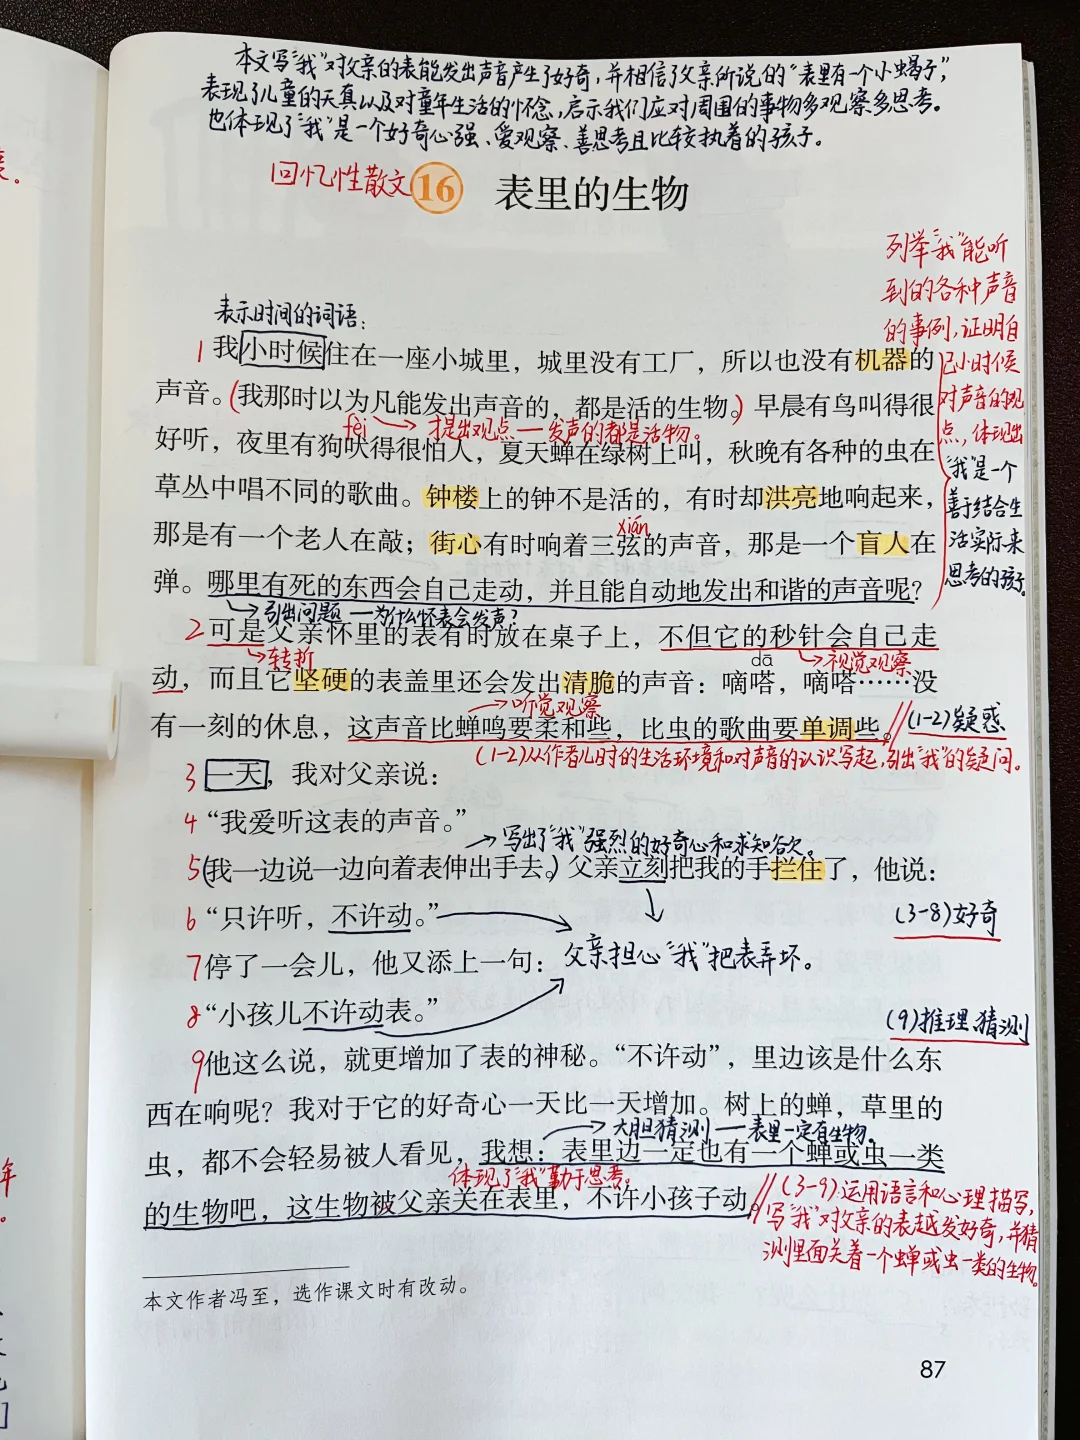 本文写“我”对父亲的表能发出声音产生了好奇，并相信了父亲所说的“表里有一个小蝎子”，
表现了儿童的天真以及对童年生活的怀念，启示我们应对周围的事物多观察多思考。
也体现了“我”是一个好奇心强、爱观察、善思考且比较执着的孩子。
回忆性散文 16 表里的生物
列举“我”能听
到的各种声音
的事例，证明自
己小时候
对声音的观
点，体现出
“我”是一个
善于结合生
活实际来
思考的孩子。
表示时间的词语：
1 我小时候住在一座小城里，城里没有工厂，所以也没有机器的
声音。(我那时以为凡能发出声音的，都是活的生物。)早晨有鸟叫得很
fèi → 提出观点一发声的都是活物。
好听，夜里有狗吠得很怕人，夏天蝉在绿树上叫，秋晚有各种的虫在
草丛中唱不同的歌曲。钟楼上的钟不是活的，有时却洪亮地响起来，
xián
那是有一个老人在敲；街心有时响着三弦的声音，那是一个盲人在
弹。哪里有死的东西会自己走动，并且能自动地发出和谐的声音呢？
→引出问题一为什么怀表会发声？
2 可是父亲怀里的表有时放在桌子上，不但它的秒针会自己走
→转折
dā
→视觉观察
动，而且它坚硬的表盖里还会发出清脆的声音：嘀嗒，嘀嗒……没
→听觉观察
有一刻的休息，这声音比蝉鸣要柔和些，比虫的歌曲要单调些。//(1-2)疑惑
(1-2)从作者儿时的生活环境和对声音的认识写起，引出“我”的疑问。
3 一天，我对父亲说：
4 “我爱听这表的声音。”
→写出了“我”强烈的好奇心和求知欲。
5 (我一边说一边向着表伸出手去。)父亲立刻把我的手拦住了，他说：
6 “只许听，不许动。”
(3-8)好奇
7 停了一会儿，他又添上一句：
父亲担心“我”把表弄坏。
8 “小孩儿不许动表。”
(9)推理、猜测
9 他这么说，就更增加了表的神秘。“不许动”，里边该是什么东
西在响呢？我对于它的好奇心一天比一天增加。树上的蝉，草里的
→大胆猜测一表里一定有生物。
虫，都不会轻易被人看见，我想：表里边一定也有一个蝉或虫一类
体现了“我”勤于思考。
的生物吧，这生物被父亲关在表里，不许小孩子动。
//(3-9)运用语言和心理描写，
写“我”对父亲的表越发好奇，并猜
测里面关着一个蝉或虫一类的生物。
本文作者冯至，选作课文时有改动。
87